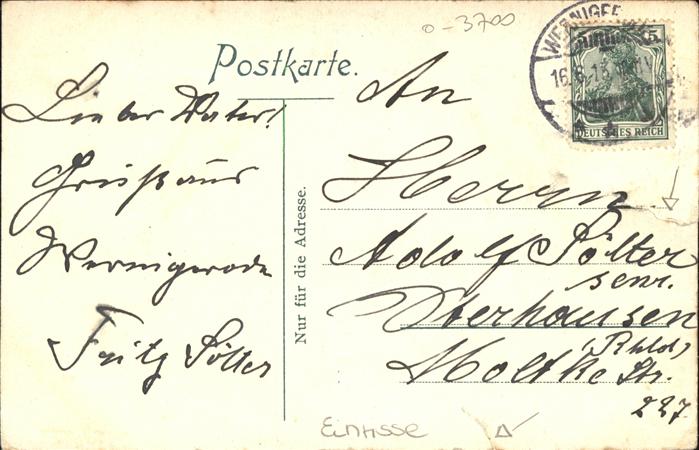 o-3700
Postkarte.
WERNIGE
16.6.13
5
DEUTSCHES REICH
Lieber Vater!
Gruß aus
Wernigerode
Fritz Sölter
Nur für die Adresse.
An
Herrn
Adolf Sölter
senr.
Oberhausen
(Rhld)
Moltke Str.
227.
Einrisse